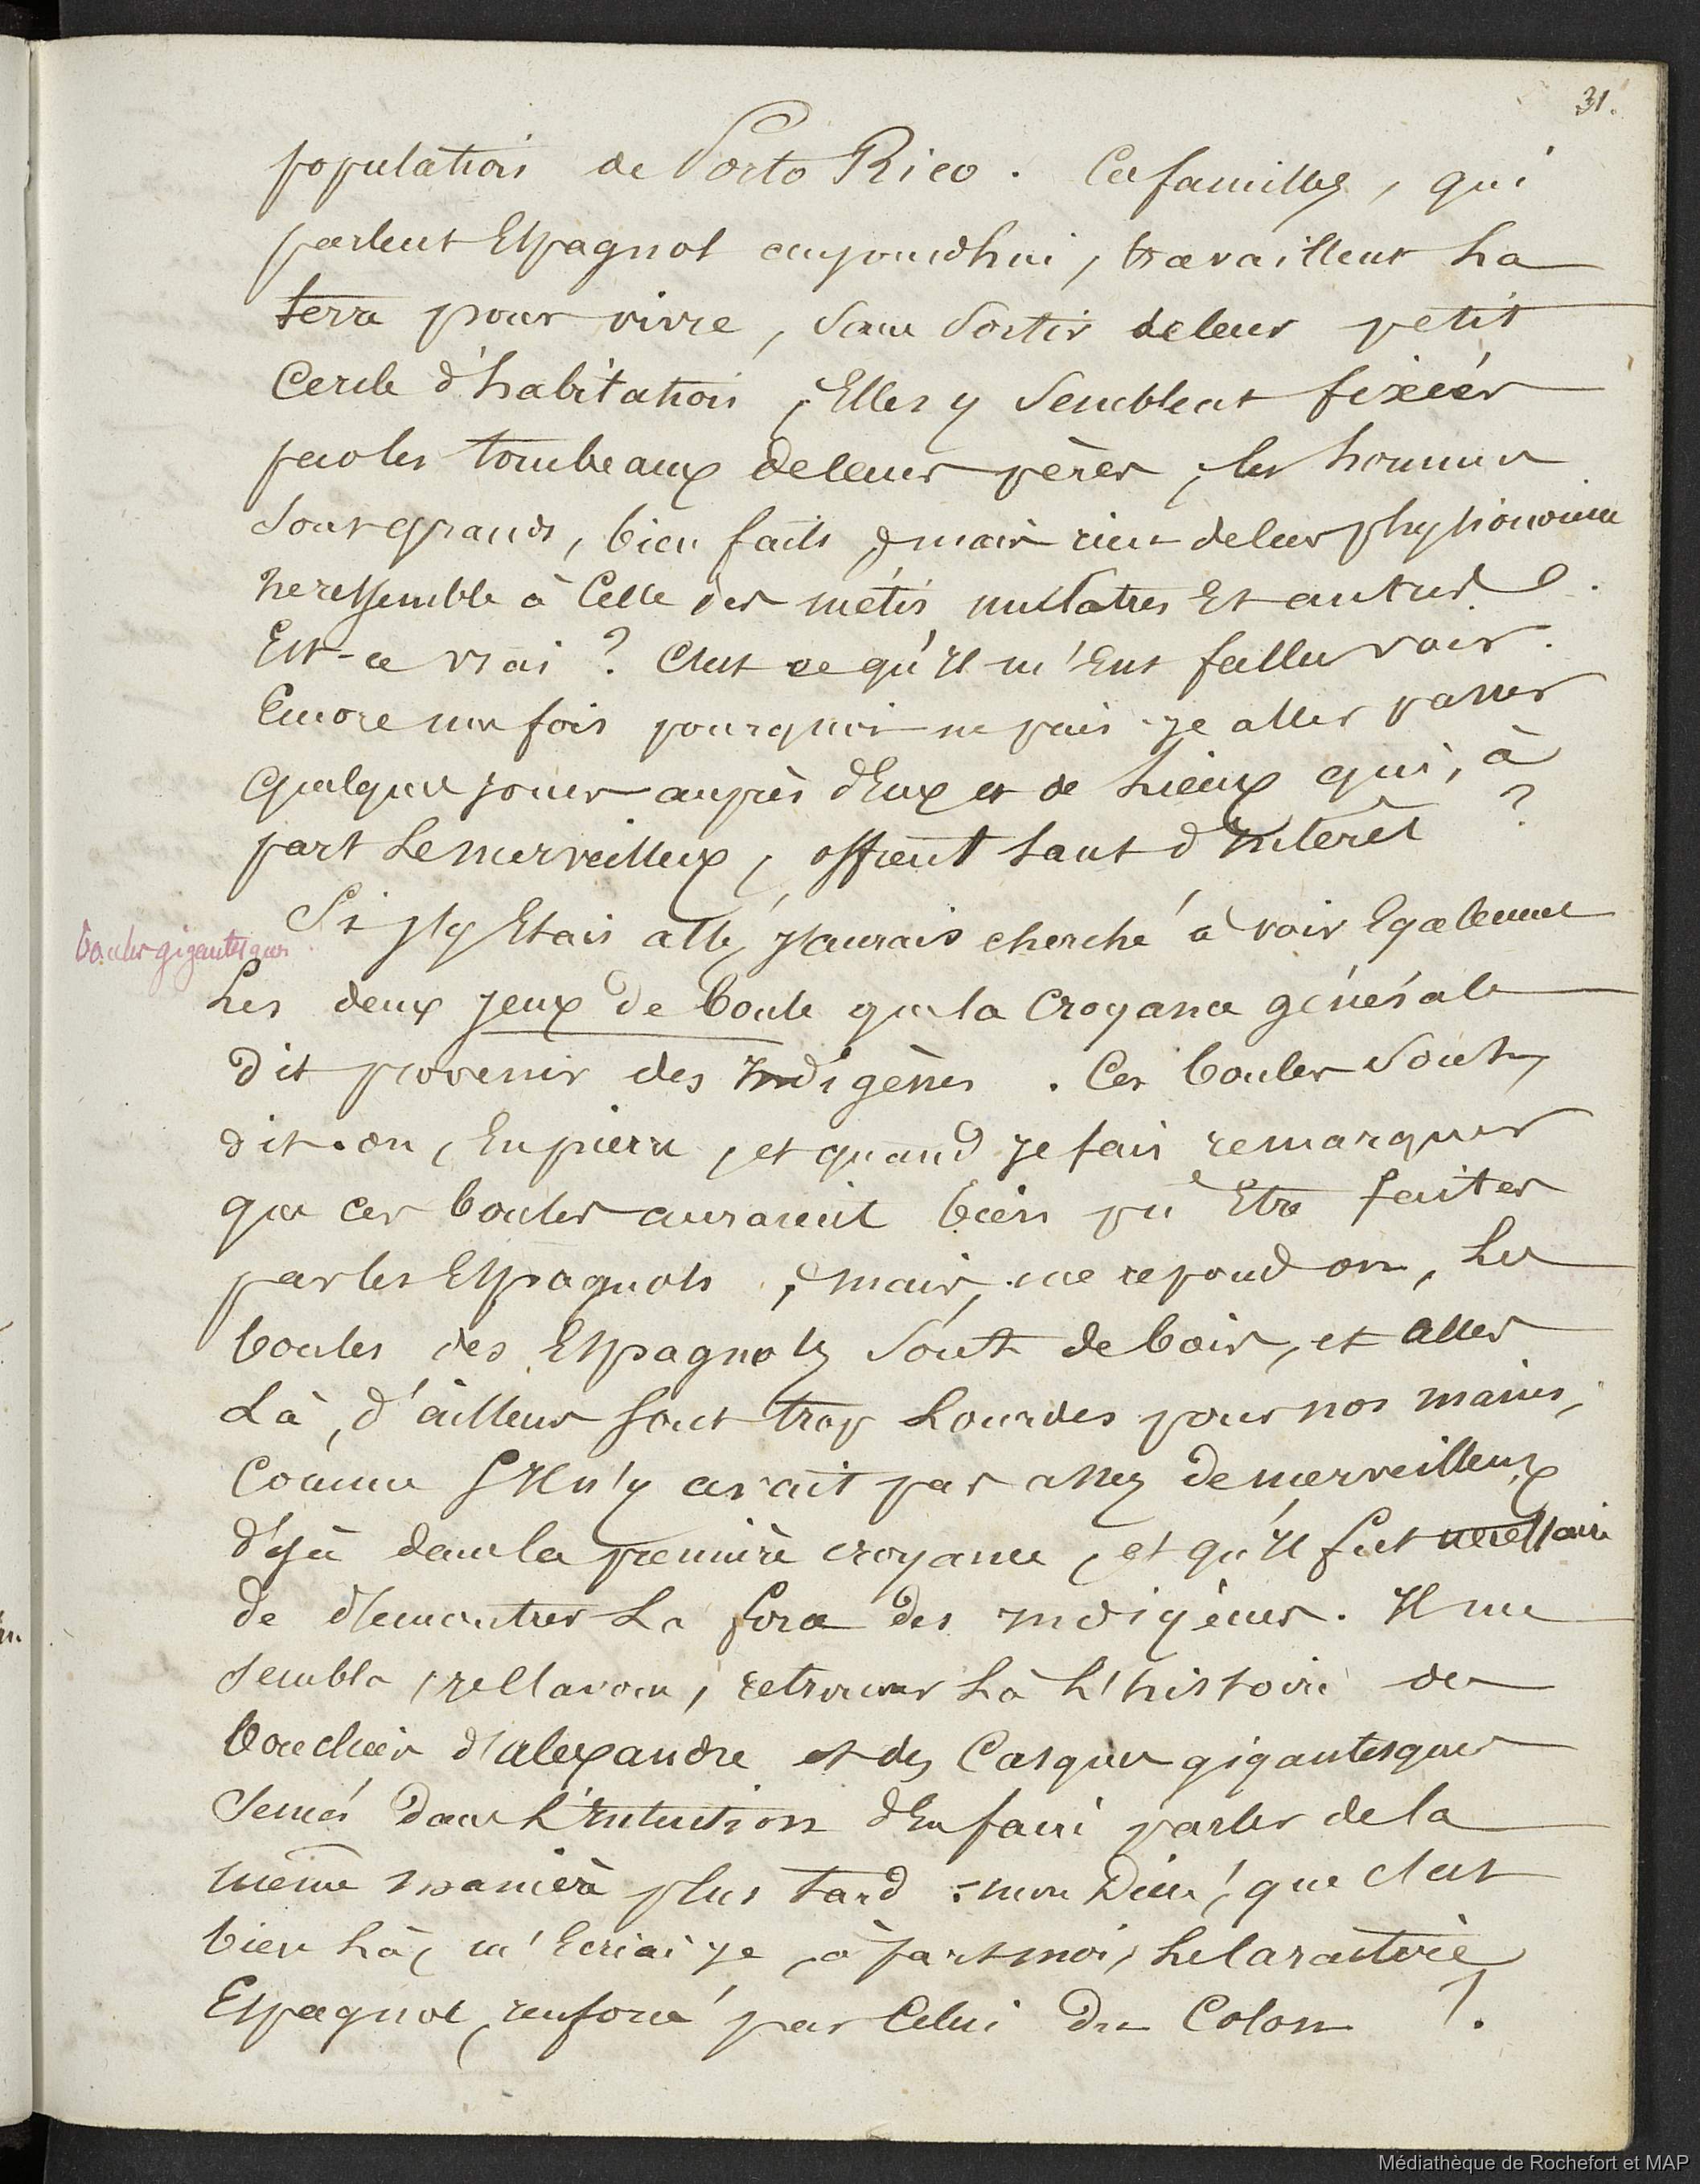 31.
population de Porto Rico. Ces familles, qui
parlent Espagnol aujourdhui, travaillent La
terre pour vivre, Sans Sortir de leur petit
Cercle d'habitation, Elles y Semblent fixées
par les tombeaux de leurs pères, les hommes
Sont grands, bien faits, mais rien de leur physionomie
ne ressemble à Celle des métis, mulâtres Et autres.
Est-ce vrai ? C'est ce qu'Il m'Eut fallu voir.
Encore une fois pourquoi ne puis-je aller passer
quelques jours auprès d'Eux et de Lieux qui, à
part Le merveilleux, offrent tant d'Intérêt ?
boules gigantesques
Si j'y Etais allé, j'aurais cherché à voir Egalement
Les deux jeux de boule que la Croyance générale
dit provenir des Indigènes. Ces boules Sont,
dit-on, En pierre, et quand je fais remarquer
que ces boules auraient bien pu Etre faites
par les Espagnols, mais, me repond on, Les
boules des Espagnols Sont de bois, et Elles
Là, d'ailleurs Sont trop Lourdes pour nos mains,
Comme S'Il n'y avait pas assez de merveilleux
déjà dans la première croyance, et qu'Il fut necessaire
de démontrer La force des Indigènes. Il me
Sembla, je l'avoue, retrouver Là L'histoire de
bouclier d'alexandre et des Casques gigantesques
Semés dans L'Intention d'En faire parler de la
même manière plus tard : mon Dieu ! que c'est
bien Là, m'Ecriai je, à part moi, Le Caractère
Espagnol, renforcé par Celui du Colon !.
Médiathèque de Rochefort et MAP